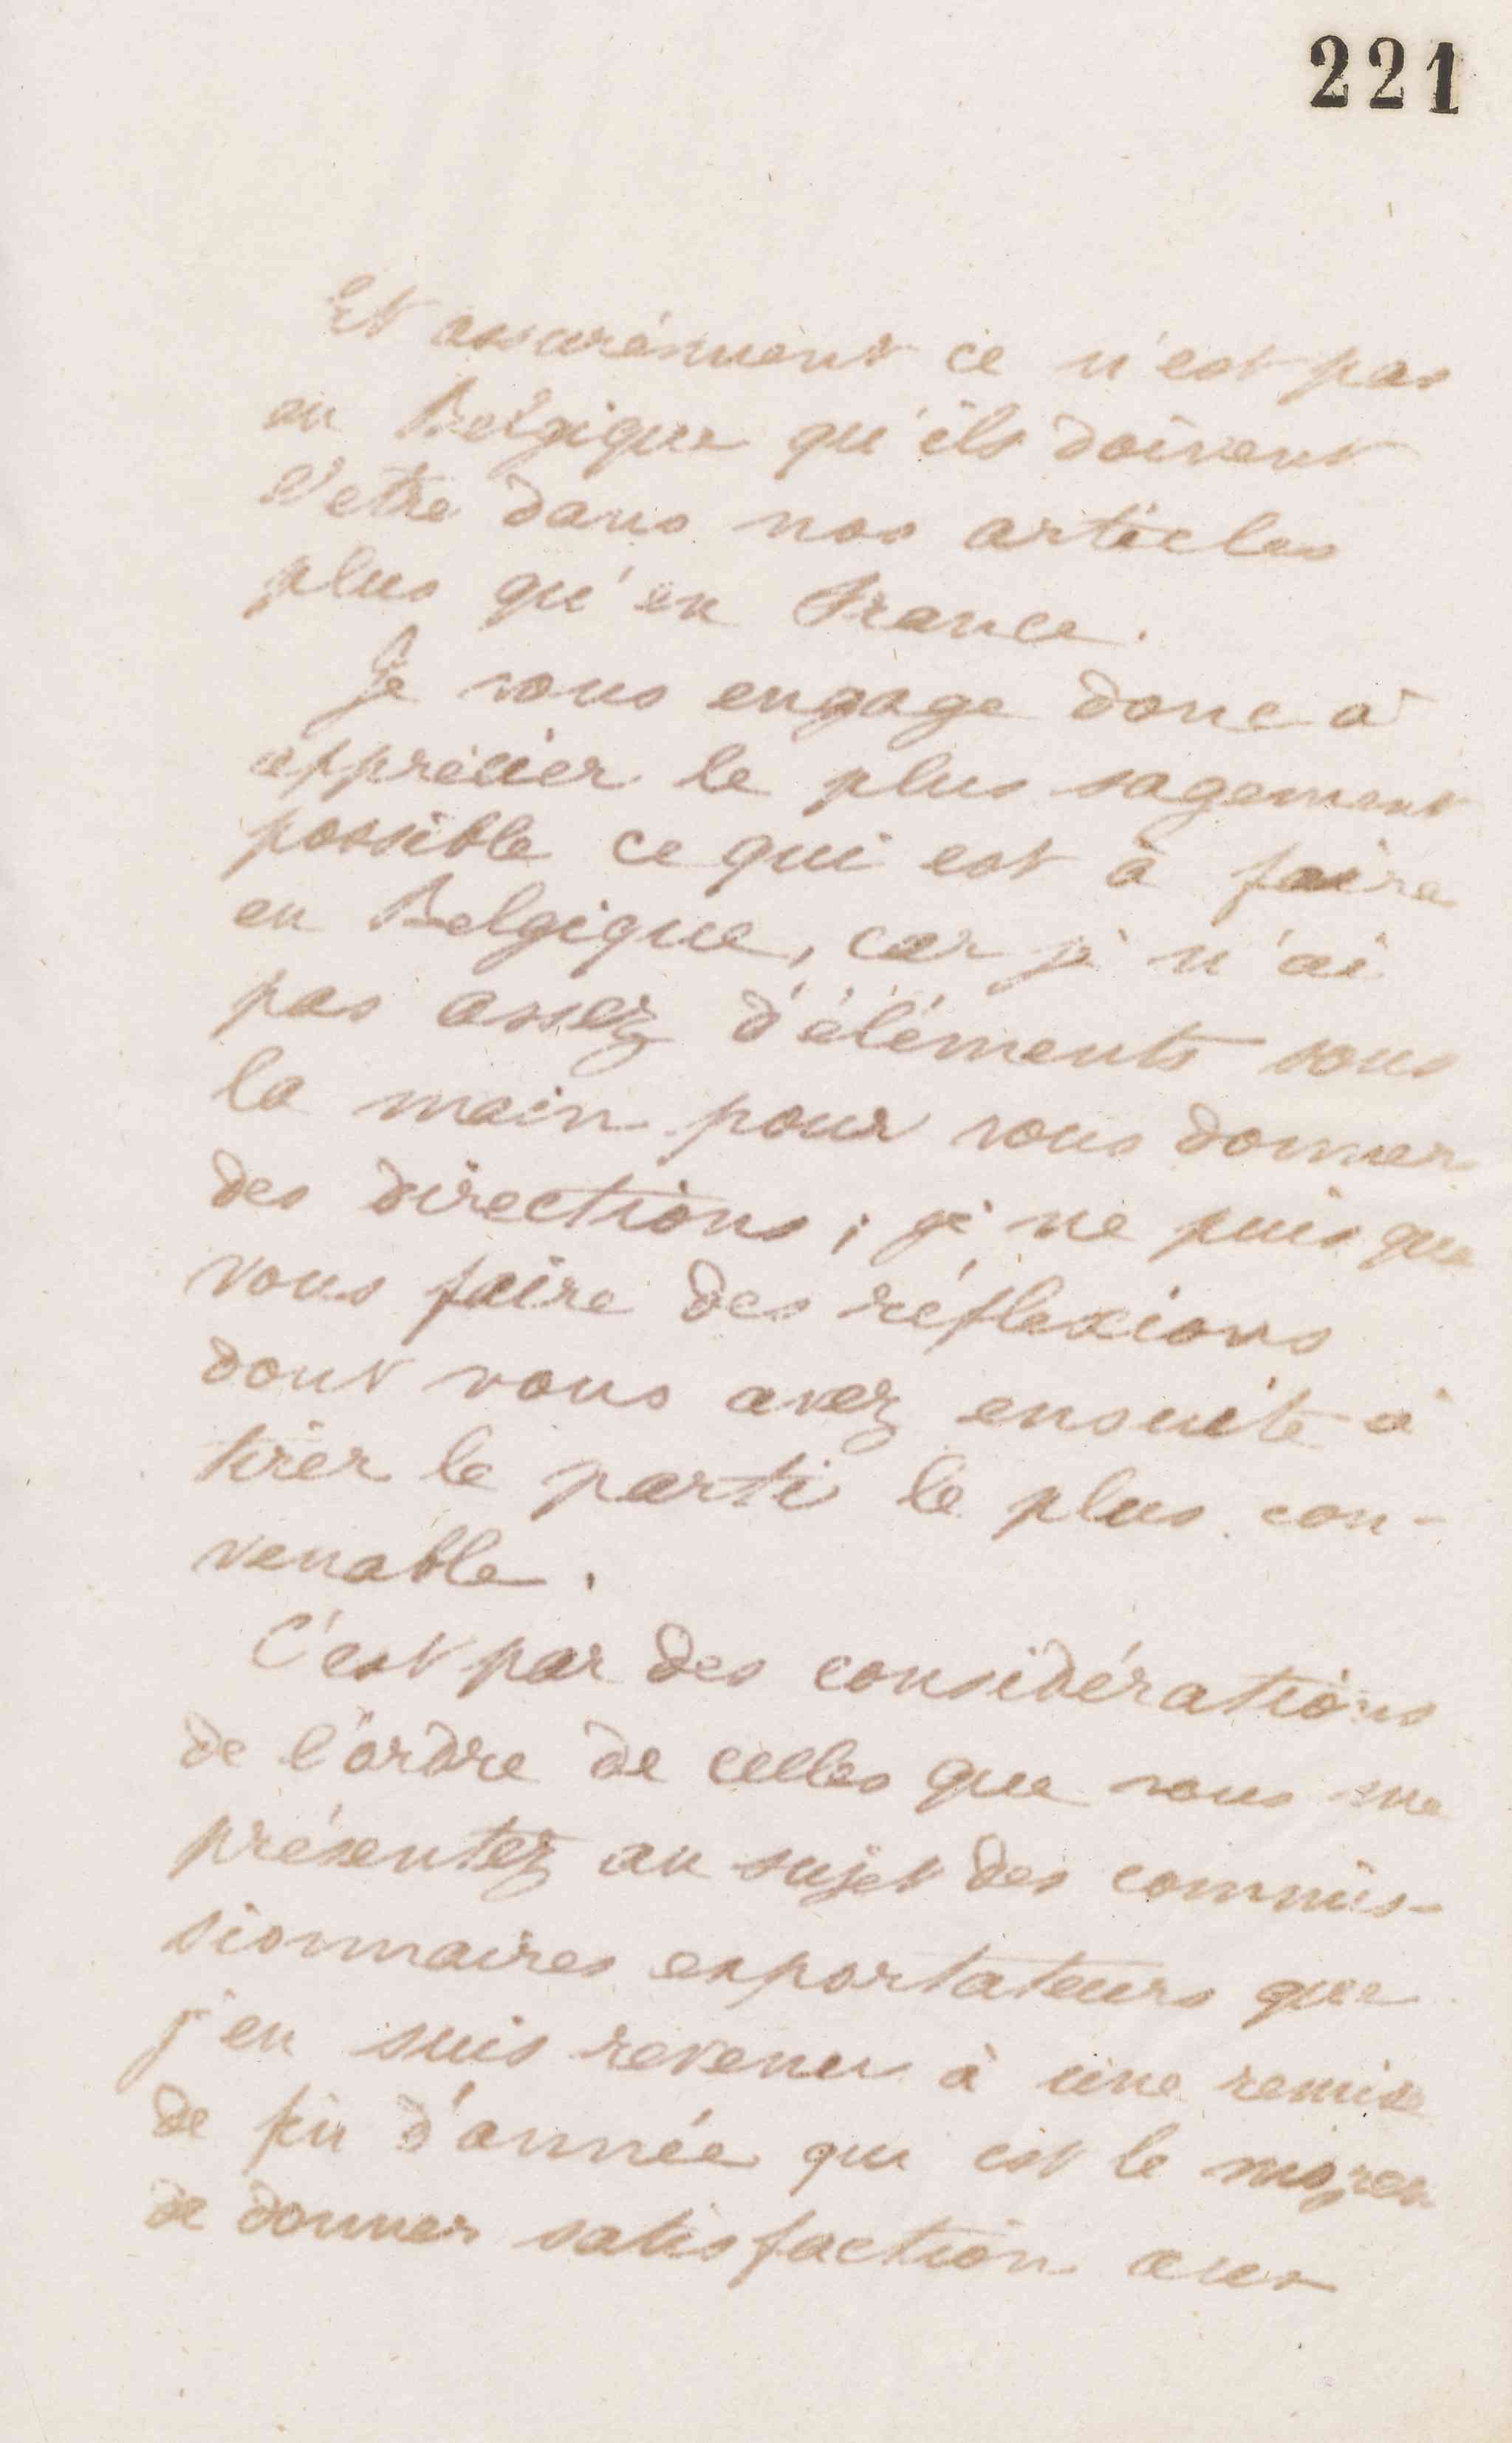 221
Et assurément ce n'est pas
en Belgique qu'ils doivent
l'etre dans nos articles
plus qu'en France.
Je vous engage donc à
apprécier le plus sagement
possible ce qui est à faire
en Belgique, car je n'ai
pas assez d'éléments sous
la main pour vous donner
des directions ; je ne puis que
vous faire des réflexions
dont vous avez ensuite à
tirer le parti le plus con-
venable.
C'est par des considérations
de l'ordre de celles que vous me
présentez au sujet des commis-
sionnaires exportateurs que
j'en suis revenu à une remise
de fin d'année qui est le moyen
de donner satisfaction aux